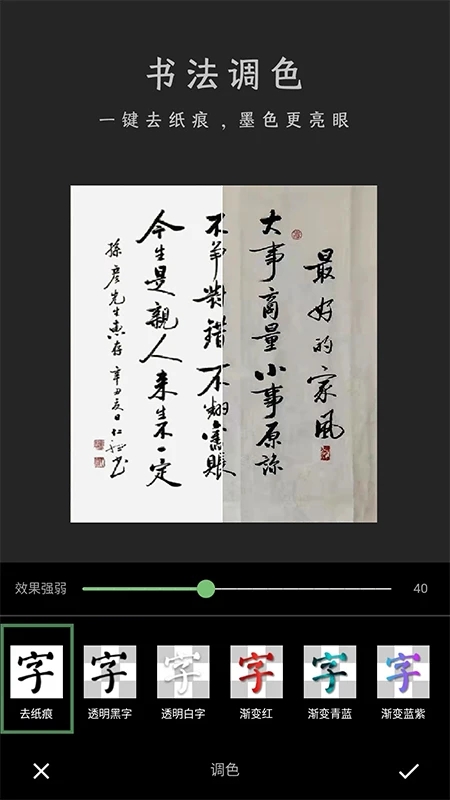 书法调色
一键去纸痕，墨色更亮眼
最好的家风
大事商量小事原谅
不争对错不翻旧账
今生是親人来生不一定
孫彦先生惠存辛丑亥日仁
效果强弱
40
字
字
字
字
字
字
去纸痕
透明黑字
透明白字
渐变红
渐变青蓝
渐变蓝紫
调色